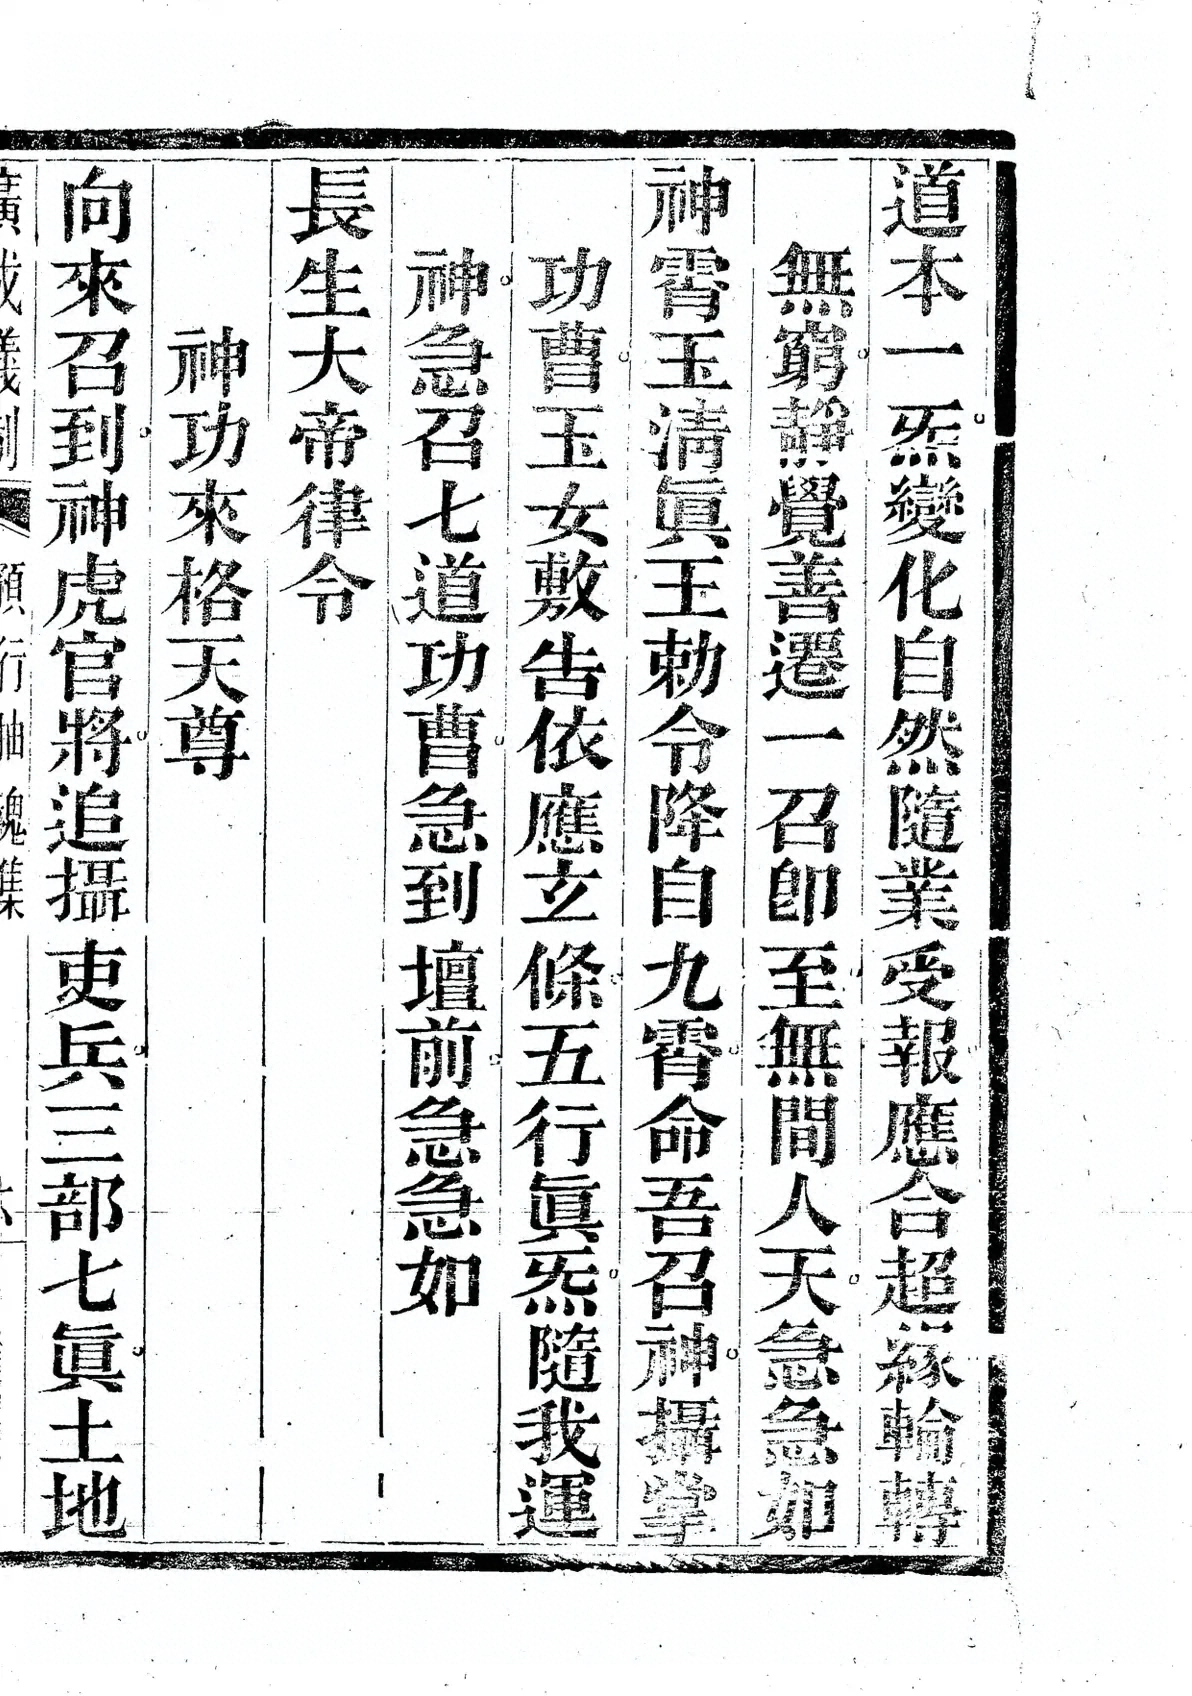 道本一炁變化自然隨業受報應合超緣輪轉
無窮靜覺善遷一召即至無間人天急急如
神霄玉淸眞王勅令降自九霄命吾召神攝掌
功曹玉女敷告依應立條五行眞炁隨我運
神急召七道功曹急到壇前急急如
長生大帝律令
神功來格天尊
向來召到神虎官將追攝吏兵三部七眞土地
廣成儀制